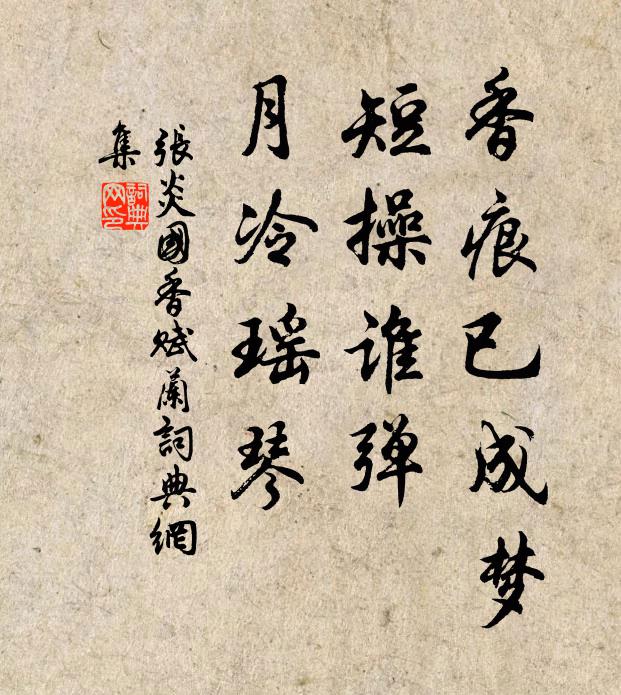 香痕已成梦
短操谁弹
月冷瑶琴
張炎國香赋蘭詞典網
集
詞典
网印